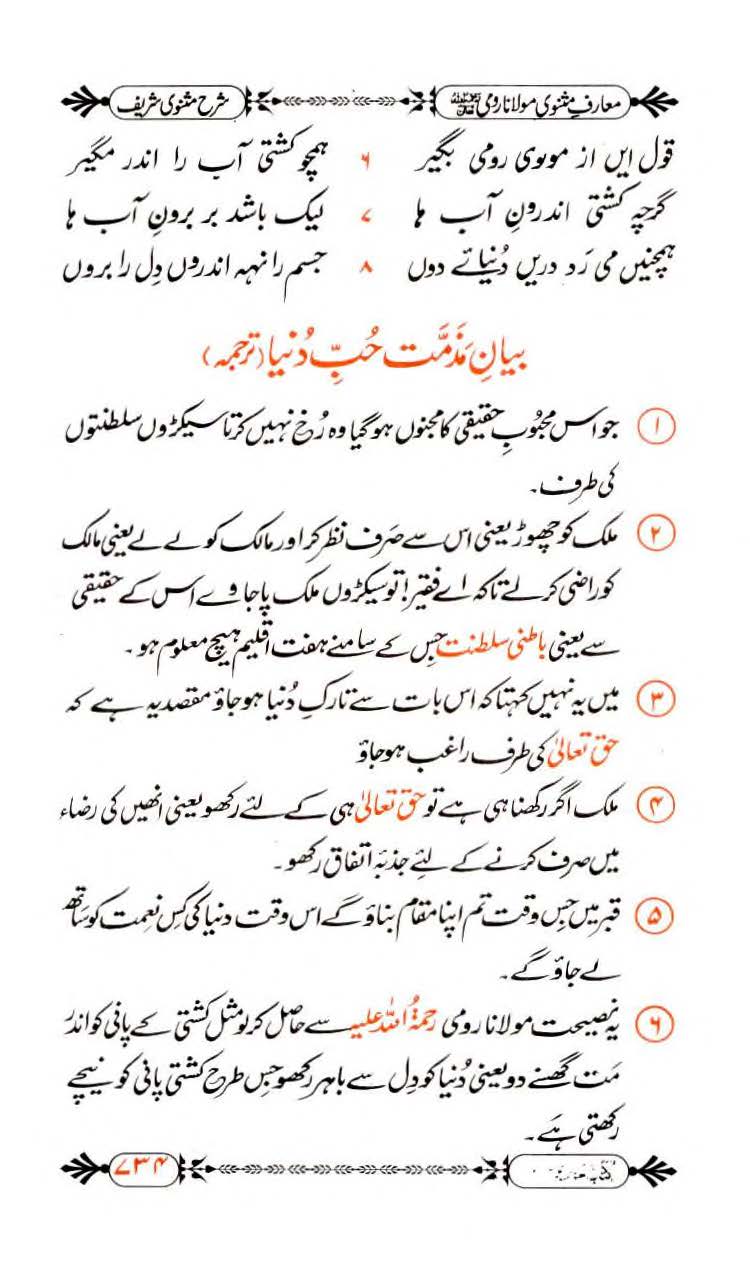 معارفِ مثنوی مولانا رومی رحمۃ اللہ علیہ شرح مثنوی شریف
قول ایں از مولوی رومی بگیر ۶ ہمچو کشتی آب را اندر مگیر
گرچہ کشتی اندرونِ آب ہا ۷ لیک باشد بر برونِ آب ہا
ہمچنیں می رَد دریں دُنیائے دوں ۸ جسم را نہہ اندروں دِل را بروں
بیانِ مَذمَّت حُبِّ دُنیا (ترجمہ)
۱ جو اس محبُوبِ حقیقی کا مجنوں ہوگیا وہ رُخ نہیں کرتا سیکڑوں سلطنتوں
کی طرف۔
۲ ملک کو چھوڑ یعنی اس سے صَرف نظر کر اور مالک کو لے لے یعنی مالک
کو راضی کرلے تاکہ اے فقیر! تو سیکڑوں ملک پاجاوے اس کے حقیقی
سے یعنی باطنی سلطنت جِس کے سامنے ہفت اقلیم ہیچ معلوم ہو۔
۳ میں یہ نہیں کہتا کہ اس بات سے تارکِ دُنیا ہوجاؤ مقصد یہ ہے کہ
حق تعالیٰ کی طرف راغب ہوجاؤ
۴ ملک اگر رکھنا ہی ہے تو حق تعالیٰ ہی کے لئے رکھو یعنی انھیں کی رضاء
میں صرف کرنے کے لئِے جذبۂ اتفاق رکھو۔
۵ قبر میں جِس وقت تم اپنا مقام بناؤ گے اس وقت دنیا کی کِس نعمِت کو سَاتھ
لے جاؤ گے۔
۶ یہ نصیحت مولانا رومی رحمۃُ اللہ علیہ سے حاصِل کرلو مثل کشتی کے پانی کو اندر
مَت گھسنے دو یعنی دُنیا کو دِل سے باہر رکھو جِس طرح کشتی پانی کو نیچے
رکھتی ہَے۔
۷۳۴